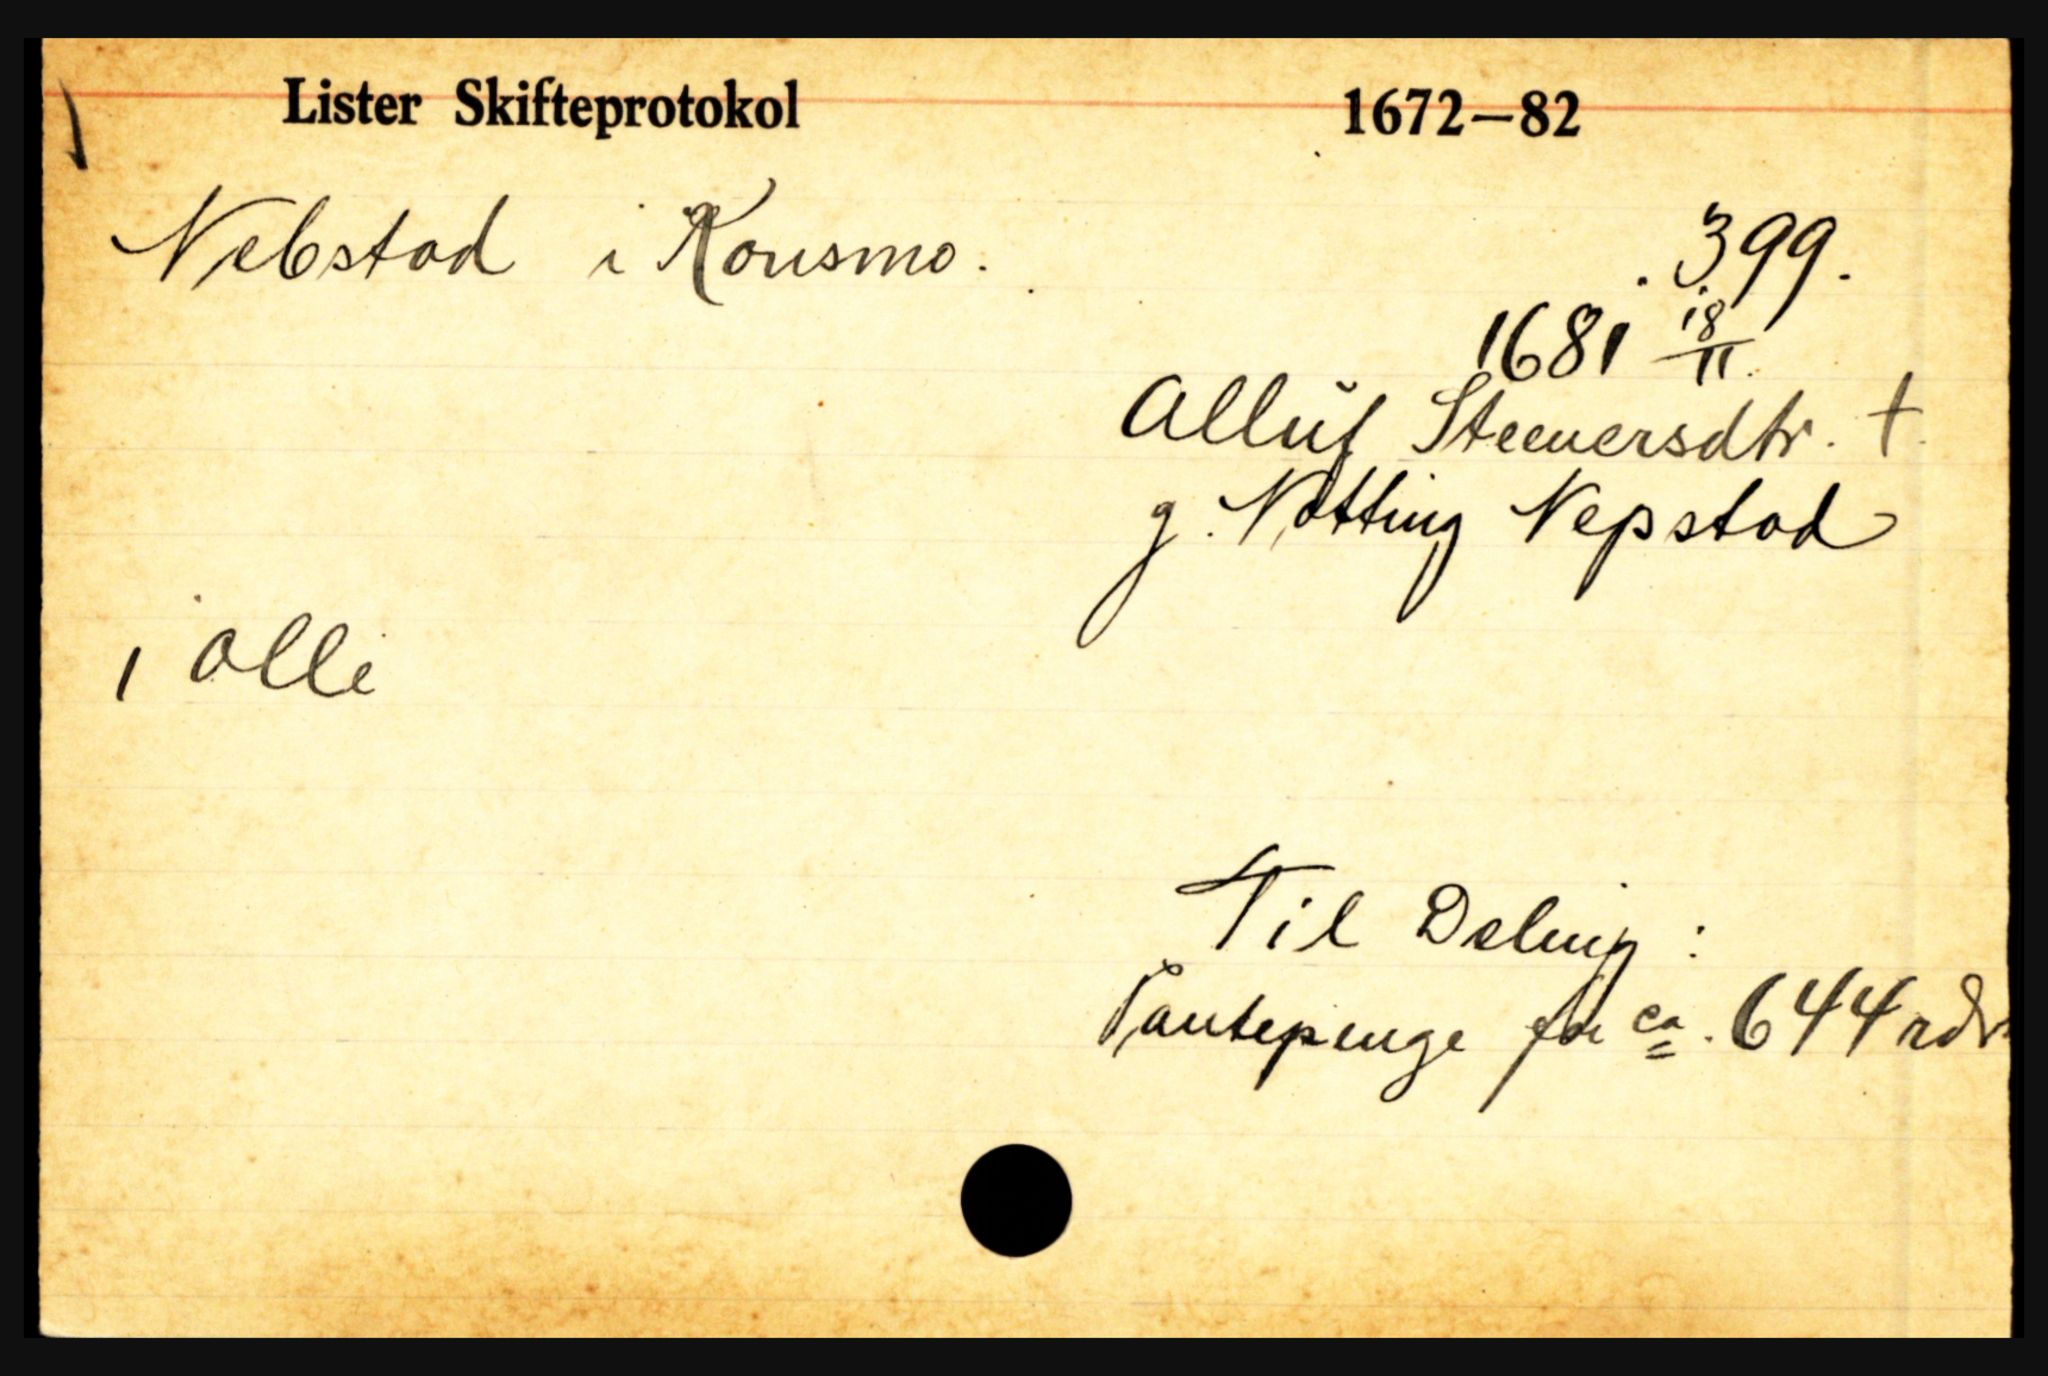 Lister Skifteprotokol 1672—82
Nebstad i Konsmo.
399.
1681 18/11.
Alluf Steenersdtr. †.
g. Notting Nepstad
1 Olli
Til Deling:
Pantepenge for ca. 644 rdr